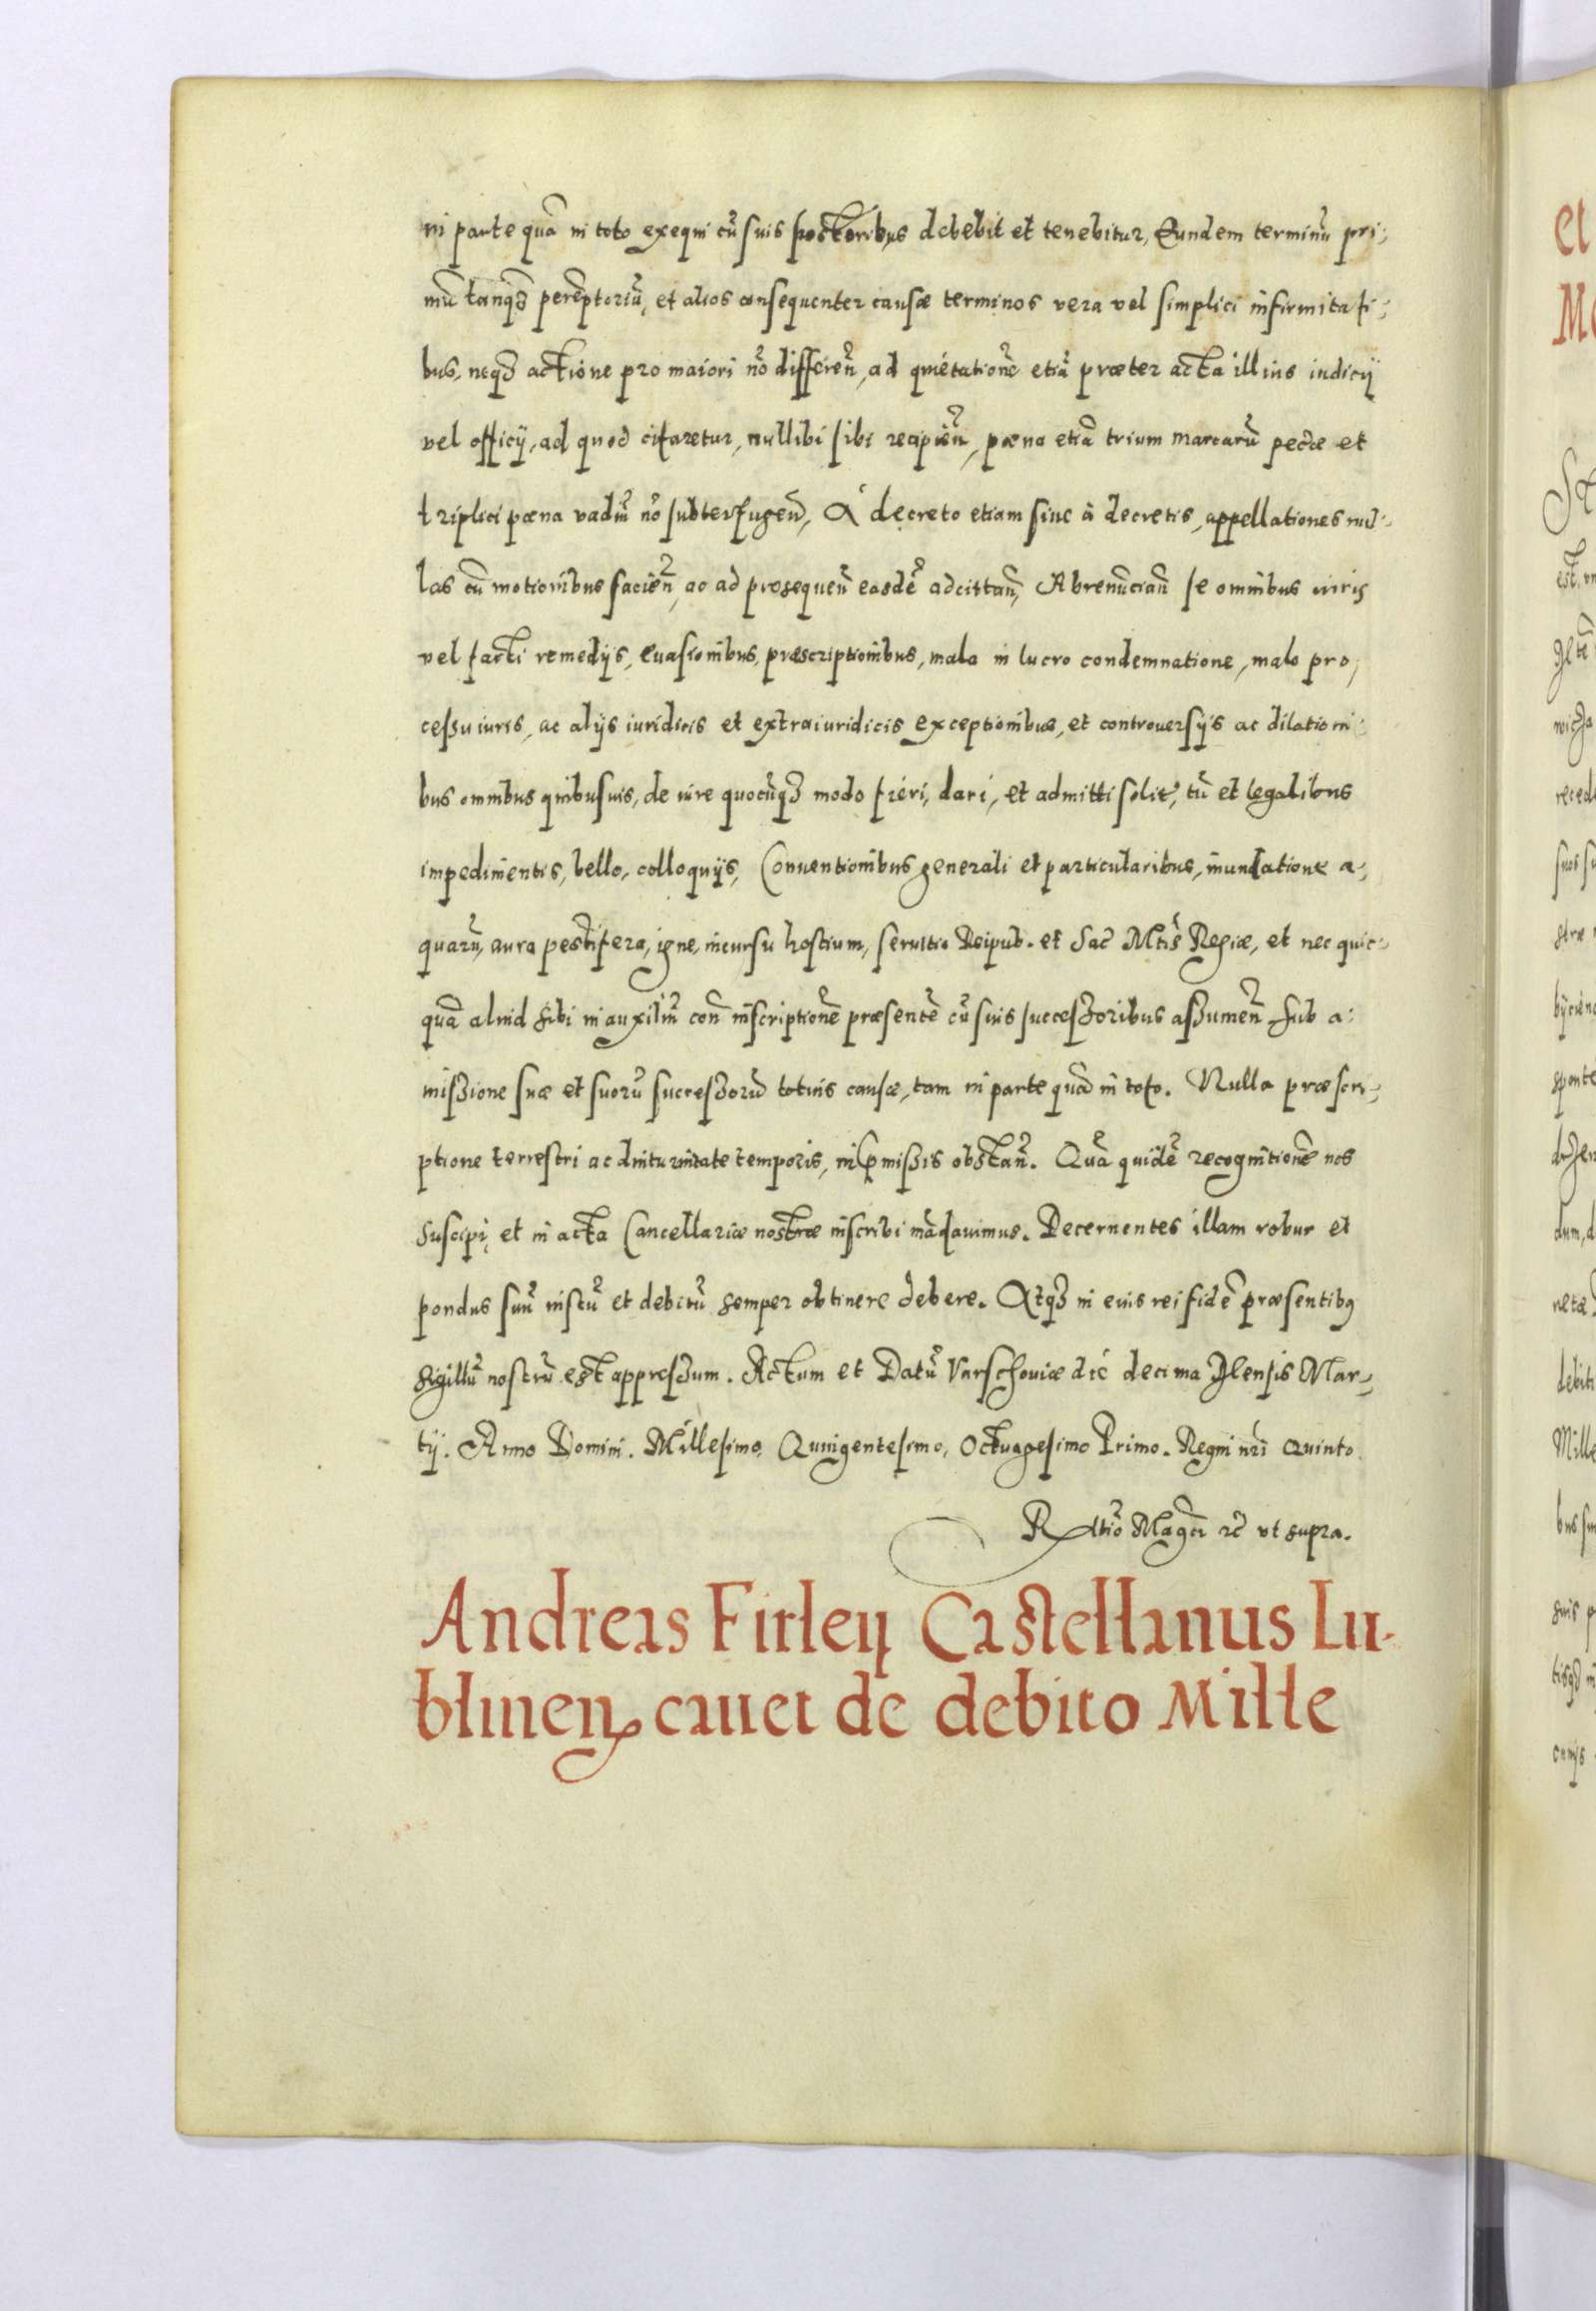 in parte quā in toto exequi cū suis posterībus debebit et tenebitur, Eundem terminū pri;
mū tanqȝ perēptoriū, et alios consequenter causæ terminos vera vel simplici infirmitati;
bus, neqȝ actione pro maiori nō differeñ, ad quietationē etiā præter acta illius iudicij
vel officij, ad quod citaretur, nullibi sibi recipieñ, pæna etiā trium marcarū pecæ et
triplici pæna vadiū nō subterfugeñ, A decreto etiam siue à decretis, appellationes nul;
las cū motionibus facieñ, ac ad prosequeñ easdē adcittañ, Abrenūciañ se omnibus iuris
vel facti remedijs, euasionibus, præscriptionibus, mala in lucro condemnatione, malo pro,
cessu iuris, ac alijs iuridicis et extraiuridicis exceptionibus, et controuersijs ac dilationi:
bus omnibus quibusuis, de iure quocūqȝ modo fieri, dari, et admitti solit', tū et legalibus
impedimentis, bello, colloquijs, Conuentionibus generali et particularibus, inundatione a;
quarū, aura pestifera, igne, incursu hostium, seruitio Reipub. et Sac̄ Mtis Regiæ, et nec quic:
quā aliud sibi in auxiliū con̄ inscriptionē præsentē cū suis successoribus assumeñ sub a:
missione suæ et suorū successorū totius causæ, tam in parte quā in toto. Nulla præscri;
ptione terrestri ac diuturnitate temporis, in ꝓmissis obstañ. Quā quidē recognitionē nos
suscipi, et in acta Cancellariæ nostræ inscribi mādauimus. Decernentes illam robur et
pondus suū iustū et debitū semper obtinere debere. Atqȝ in euis rei fidē præsentibꝰ
sigillū nostrū est appressum. Actum et Datū Varschouiæ die decima Mensis Mar;
tij. Anno Domini. Millesimo, Quingentesimo, Octuagesimo Primo. Regni nri Quinto.
Rltio Magci ꝛc̄ vt supra.
Andreas Firleÿ Castellanus Lu-
blineñ cauet de debito Mille